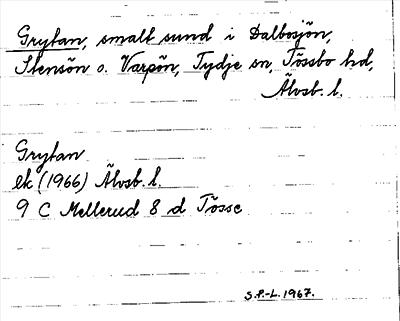 Grytan, smalt sund i Dalbosjön,
Stensön o. Varpön, Tydje sn, Tössbo hd,
Älvsb. l.
Grytan
ek (1966) Älvsb. l.
9 C Mellerud 8 d Tösse
S.P.-L. 1967.